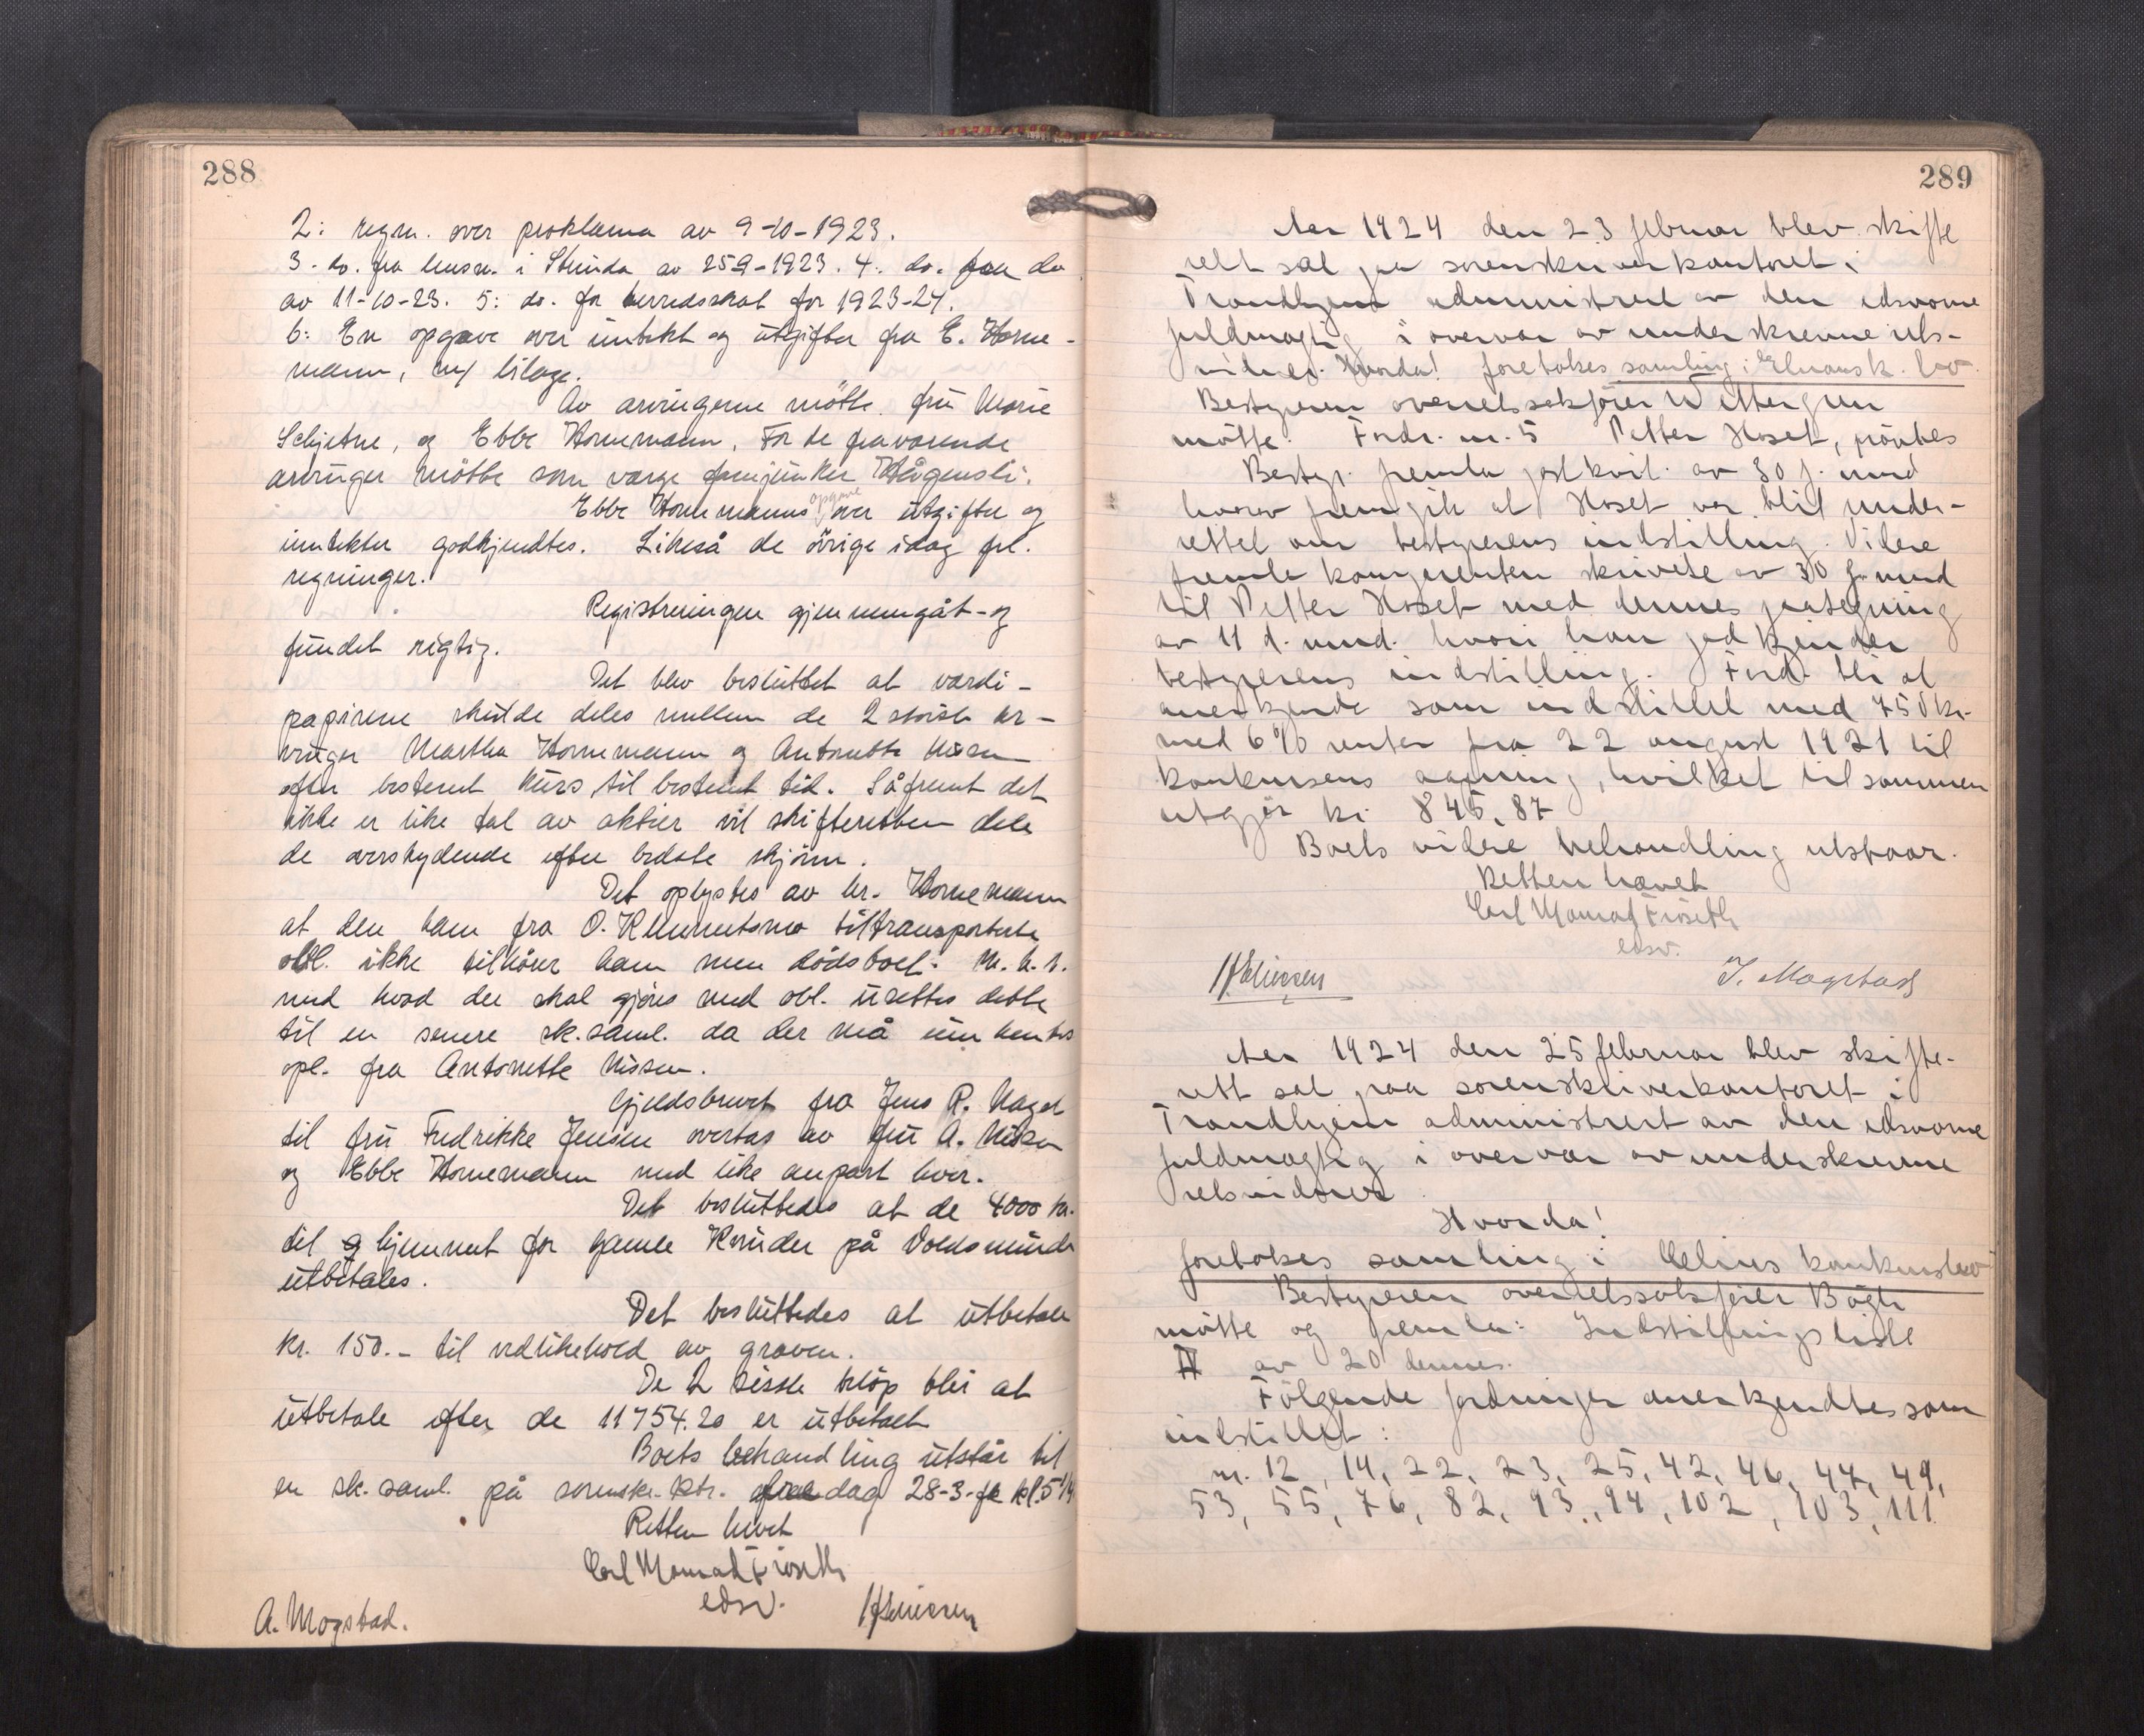 288
2: regn. over proklama av 9-10-1923.
3. do. fra lensm. i Strinda av 25-9-1923. 4. do. fra do
av 11-10-23. 5: do. for herredsskat for 1923-24.
6: En opgave over inntekt og utgifter fra E. Horne-
mann, m/ bilage.
Av arvingerne møtte fru Marie
Schjetne, og Ebbe Hornemann. For de fraværende
arvinger møtte som værge
Ebbe Hornemanns opgave over utgifter og
inntekter godkjendtes. Likeså de øvrige idag frl.
regninger.
Registreringen gjennemgåt og
fundet rigtig.
Det blev besluttet at værdi-
papirene skulde deles mellem de 2 største ar-
vinger Martha Hornemann og Antonette Nissen
efter bestemt kurs til bestemt tid. Såfremt det
ikke er like tal av aktier vil skifteretten dele
de overskydende efter bedste skjønn.
Det oplystes av hr. Hornemann
at den ham fra O. Klemmetsmo tiltransporterte
obl. ikke tilhører ham men dødsboet. M. h. t.
med hvad der skal gjøres med obl. utsettes dette
til en senere sk.saml. da der må innhentes
opl. fra Antonette Nissen.
Gjeldsbrevet fra Jens P. Nagel
til fru Fredrikke Jensen overtas av fru A. Nissen
og Ebbe Hornemann med like anpart hver.
Det besluttedes at de 4000 kr.
til hjemmet for gamle Kvinder på Voldsminde
utbetales.
Det besluttedes at utbetale
kr. 150.- til vedlikehold av graven.
De 2 sisste beløp blir at
utbetale efter de 11754.20 er utbetalt
Boets behandling utstår til
en sk. saml. på sorenskr. ktr. fredag 28-3- kl 5 1/4
Retten hevet
Carl Monrad Frøseth
edsv.
A. Mogstad.
289
Aar 1924 den 23 februar blev skifte
rett sat paa sorenskriverkontoret i
Trondhjem administrert av den edsvorne
fuldmægtig i overvær av underskrevne rets-
vidner. Hvorda! foretokes samling i
Bestyreren overretssakfører Wettergren
møtte. Fordr. nr. 5 Petter Hoset, prøvtes
Bestyr. fremla postkvit. av 30 f. mnd
hvorav fremgik at Hoset var blit under-
rettet om bestyrerens indstilling. Videre
fremla komparenten skrivelse av 30 f. mnd
til Petter Hoset med dennes paategning
av 11 d. mnd. hvori han godkjender
bestyrerens indstilling. Ford. bli at
anerkjende som indstillet med 750 kr.
med 6% renter fra 22 august 1921 til
konkursens aapning, hvilket tilsammen
utgjør kr 845,87
Boets videre behandling utstaar.
Retten hævet
Carl Monrad Frøseth
edsv.
J. Mogstad
Aar 1924 den 25 februar blev skifte-
rett sat paa sorenskriverkontoret i
Trondhjem administrert av den edsvorne
fuldmægtig i overvær av underskrevne
retsvidner
Hvorda!
foretokes samling i Celius konkursbo
Bestyreren overretssakfører Bøgh
møtte og fremla: Indstillingsliste
IV av 20 dennes.
Følgende fordringer anerkjendtes som
indstillet:
nr. 12, 14, 22, 23, 25, 42, 46, 47, 49,
53, 55, 76, 82, 93, 94, 102, 103, 111